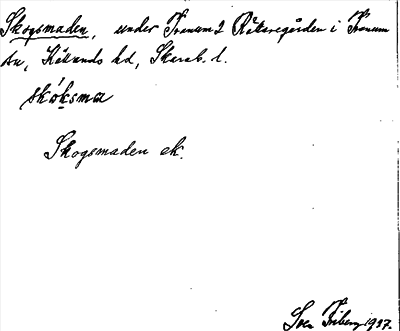 Skogsmaden, under Tranum 2 Rätaregården i Tranum
sn, Kållands hd, Skarab. l.
skóksma
Skogsmaden ek.
Sven Friberg 1937.